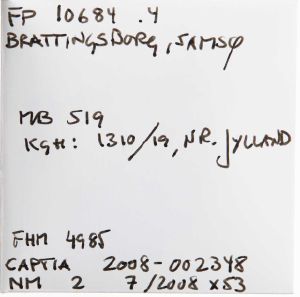 FP 10684 .4
BRATTINGSBORG, SAMSØ
MB 519
KgH: 1310/19, NR. JYLLAND
FHM 4985
CAPTIA 2008-002348
NM 2 7/2008 x53